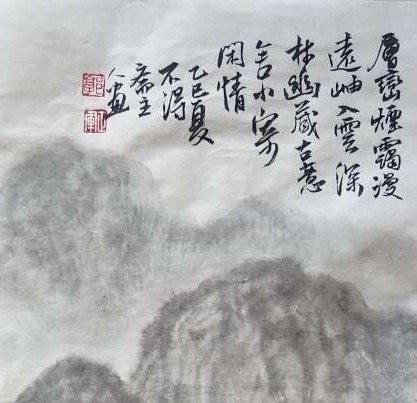 層巒煙靄漫
遠岫入雲深
林幽藏古意
舍小寄
閑情
乙巳夏
不得
斋主
人畫